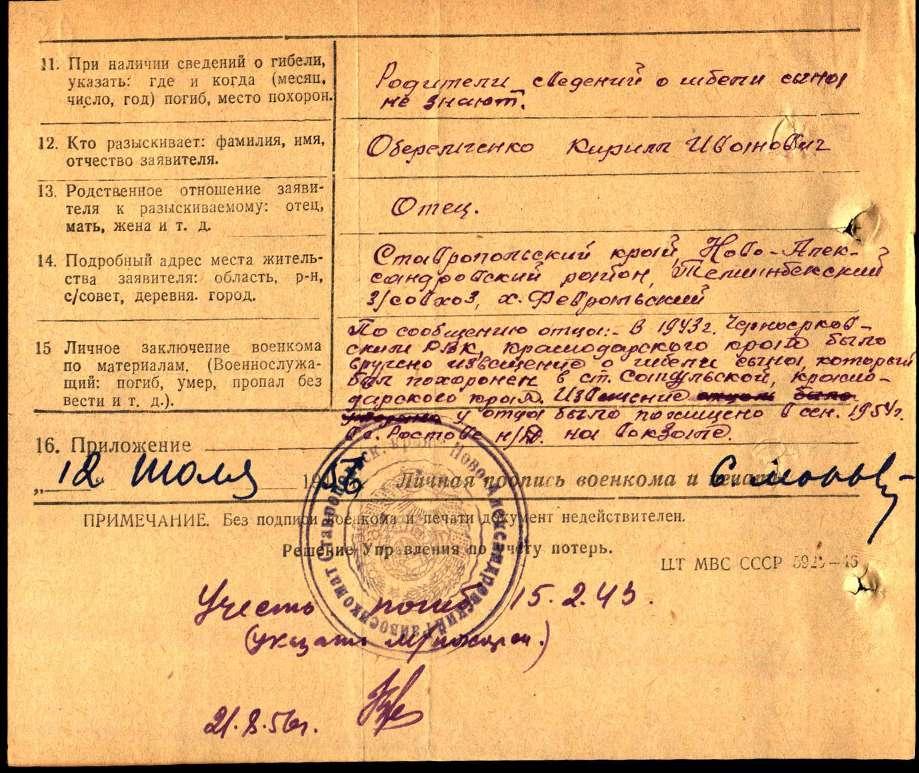 11. При наличии сведений о гибели,
указать: где и когда (месяц,
число, год) погиб, место похорон.
Родители сведений о гибели сына
не знают.
12. Кто разыскивает: фамилия, имя,
отчество заявителя.
Кирилл Иванович
13. Родственное отношение заяви-
теля к разыскиваемому: отец,
мать, жена и т. д.
Отец.
14. Подробный адрес места житель-
ства заявителя: область, р-н,
с/совет, деревня. город.
Ставропольский край, Ново-Алек-
сандровский район, Темижбекский
з/совхоз, х. Февральский
15 Личное заключение военкома
по материалам. (Военнослужа-
щий: погиб, умер, пропал без
вести и т. д.).
По сообщению отца:- В 1943 г. Черноерков-
ским РВК, Краснодарского края было
вручено извещение о гибели сына, который
был похоронен в ст. Красно-
дарского края. Извещение было
у отца было похищено в сен. 1954г.
Ростове н/Д. на вокзале.
16. Приложение
„ 12 Июля 1956 Личная подпись военкома и печать
ПРИМЕЧАНИЕ. Без подписи военкома и печати документ недействителен.
Решение Управления по учёту потерь.
ЦТ МВС СССР
Учесть погиб 15.2.43.
(указать м/похорон.)
21.8.56г.